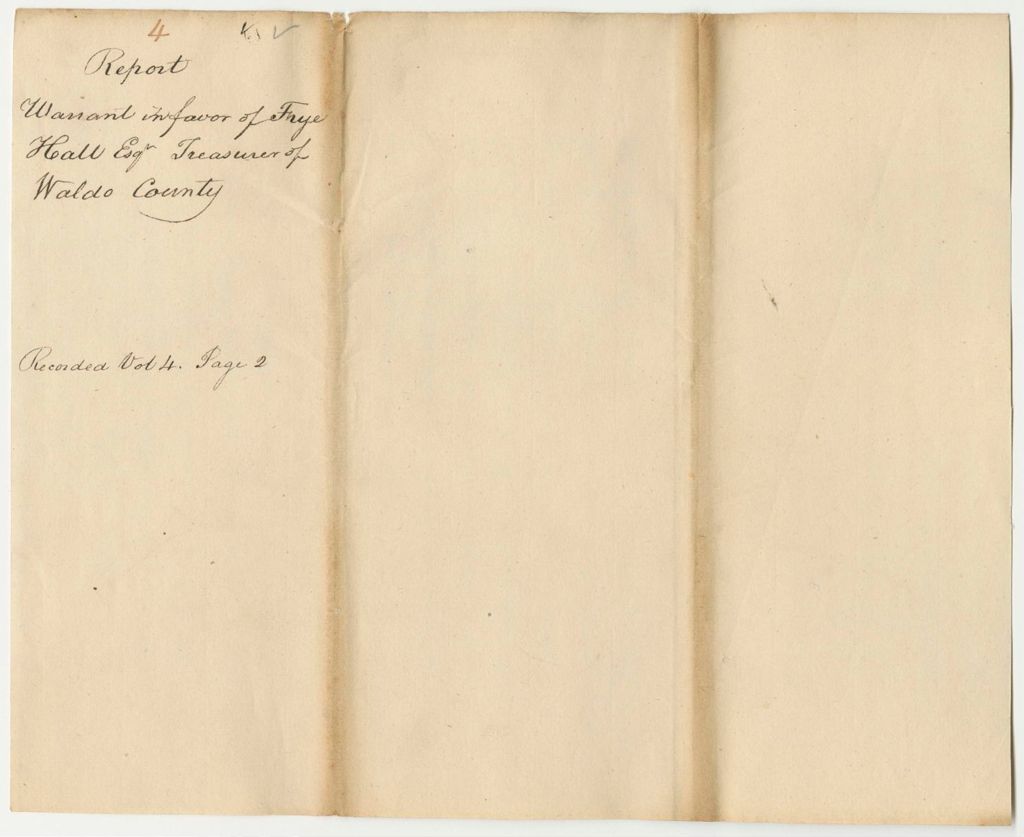 4
Report
Warrant in favor of Frye
Hall Esqr Treasurer of
Waldo County
Recorded Vol 4. Page 2